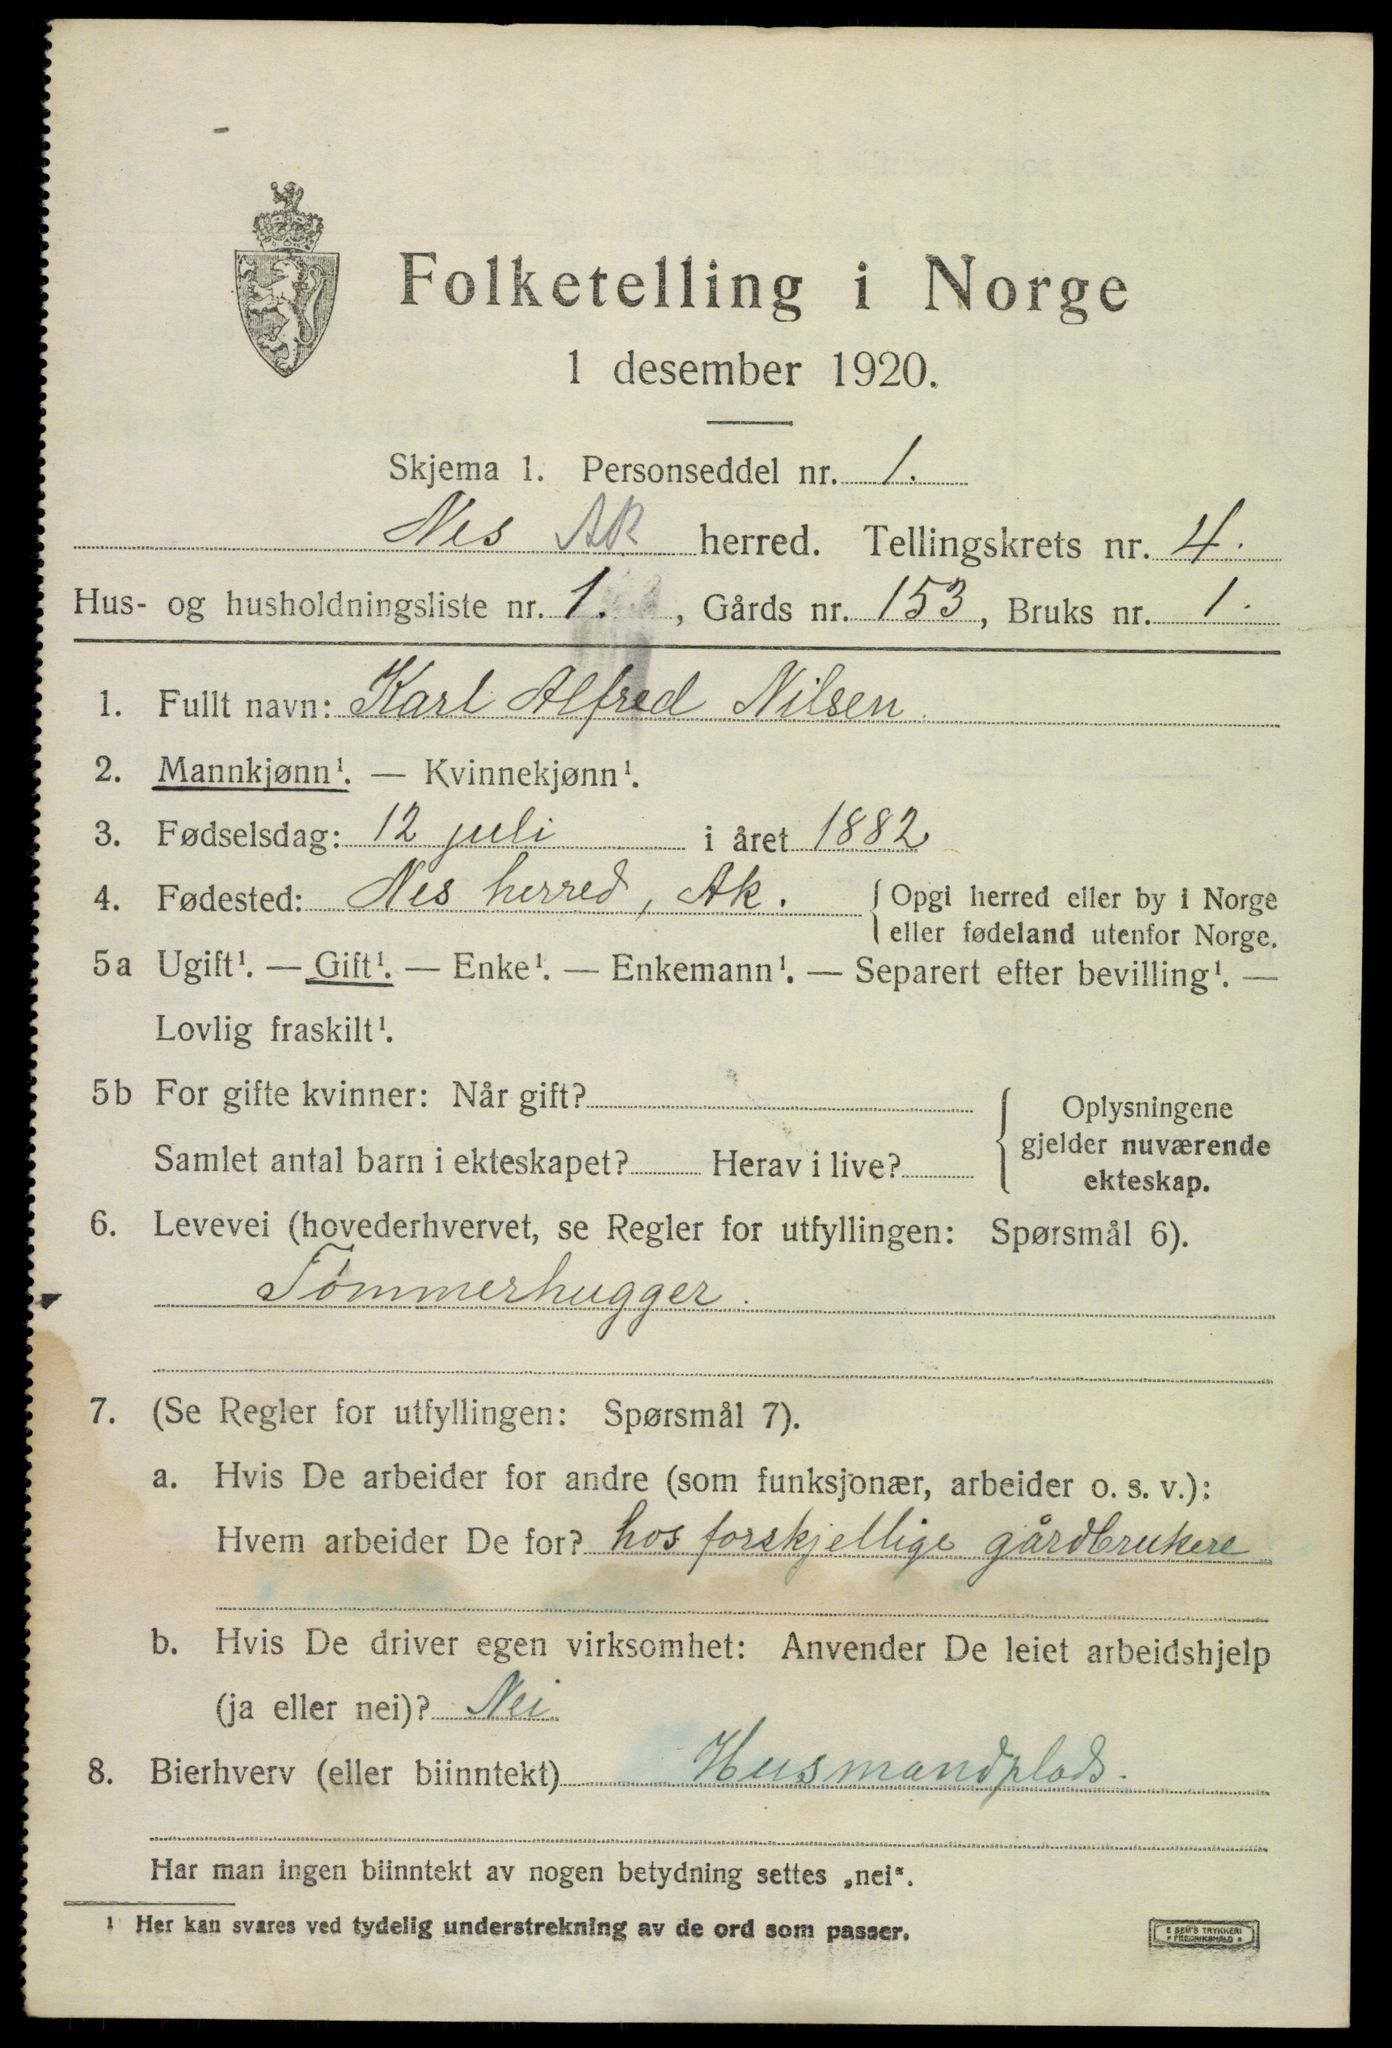 Folketelling i Norge
1 desember 1920.
Skjema 1. Personseddel nr. 1.
Nes AK herred. Tellingskrets nr. 4.
Hus- og husholdningsliste nr. 1. , Gårds nr. 153, Bruks nr. 1.
1. Fullt navn: Karl Alfred Nilsen
2. Mannkjønn¹. — Kvinnekjønn¹.
3. Fødselsdag: 12 juli i året 1882
4. Fødested: Nes herred, Ak. { Opgi herred eller by i Norge
eller fødeland utenfor Norge.
5a Ugift¹. — Gift¹. — Enke¹. — Enkemann¹. — Separert efter bevilling¹. —
Lovlig fraskilt¹.
5b For gifte kvinner: Når gift?
Samlet antal barn i ekteskapet? Herav i live?
{ Oplysningene
gjelder nuværende
ekteskap.
6. Levevei (hovederhvervet, se Regler for utfyllingen: Spørsmål 6).
Tømmerhugger.
7. (Se Regler for utfyllingen: Spørsmål 7).
a. Hvis De arbeider for andre (som funksjonær, arbeider o. s. v.):
Hvem arbeider De for? hos forskjellige gårdbrukere
b. Hvis De driver egen virksomhet: Anvender De leiet arbeidshjelp
(ja eller nei)? Nei
8. Bierhverv (eller biinntekt) Husmandplads.
Har man ingen biinntekt av nogen betydning settes „nei“.
¹ Her kan svares ved tydelig understrekning av de ord som passer.
E SEM'S TRYKKERI
FREDRIKSHALD